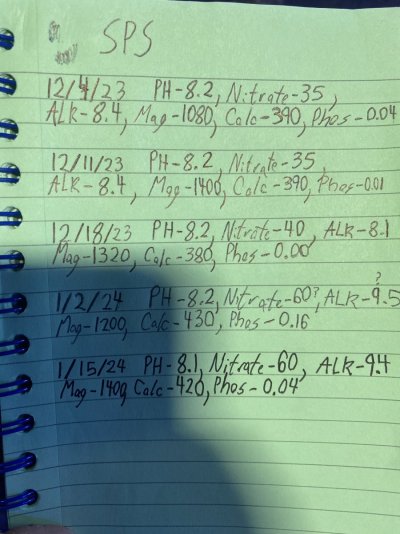 SPS
12/4/23 PH-8.2, Nitrate-35,
ALK-8.4, Mag-1080, Calc-390, Phos-0.04
12/11/23 PH-8.2, Nitrate-35,
ALK-8.4, Mag-1400, Calc-390, Phos-0.01
12/18/23 PH-8.2, Nitrate-40, ALK-8.1
Mag-1320, Calc-380, Phos-0.00
?
1/2/24 PH-8.2, Nitrate-60?, ALK-9.5
Mag-1200, Calc-430, Phos-0.16
1/15/24 PH-8.1, Nitrate-60, ALK-9.4
Mag-1400, Calc-420, Phos-0.04